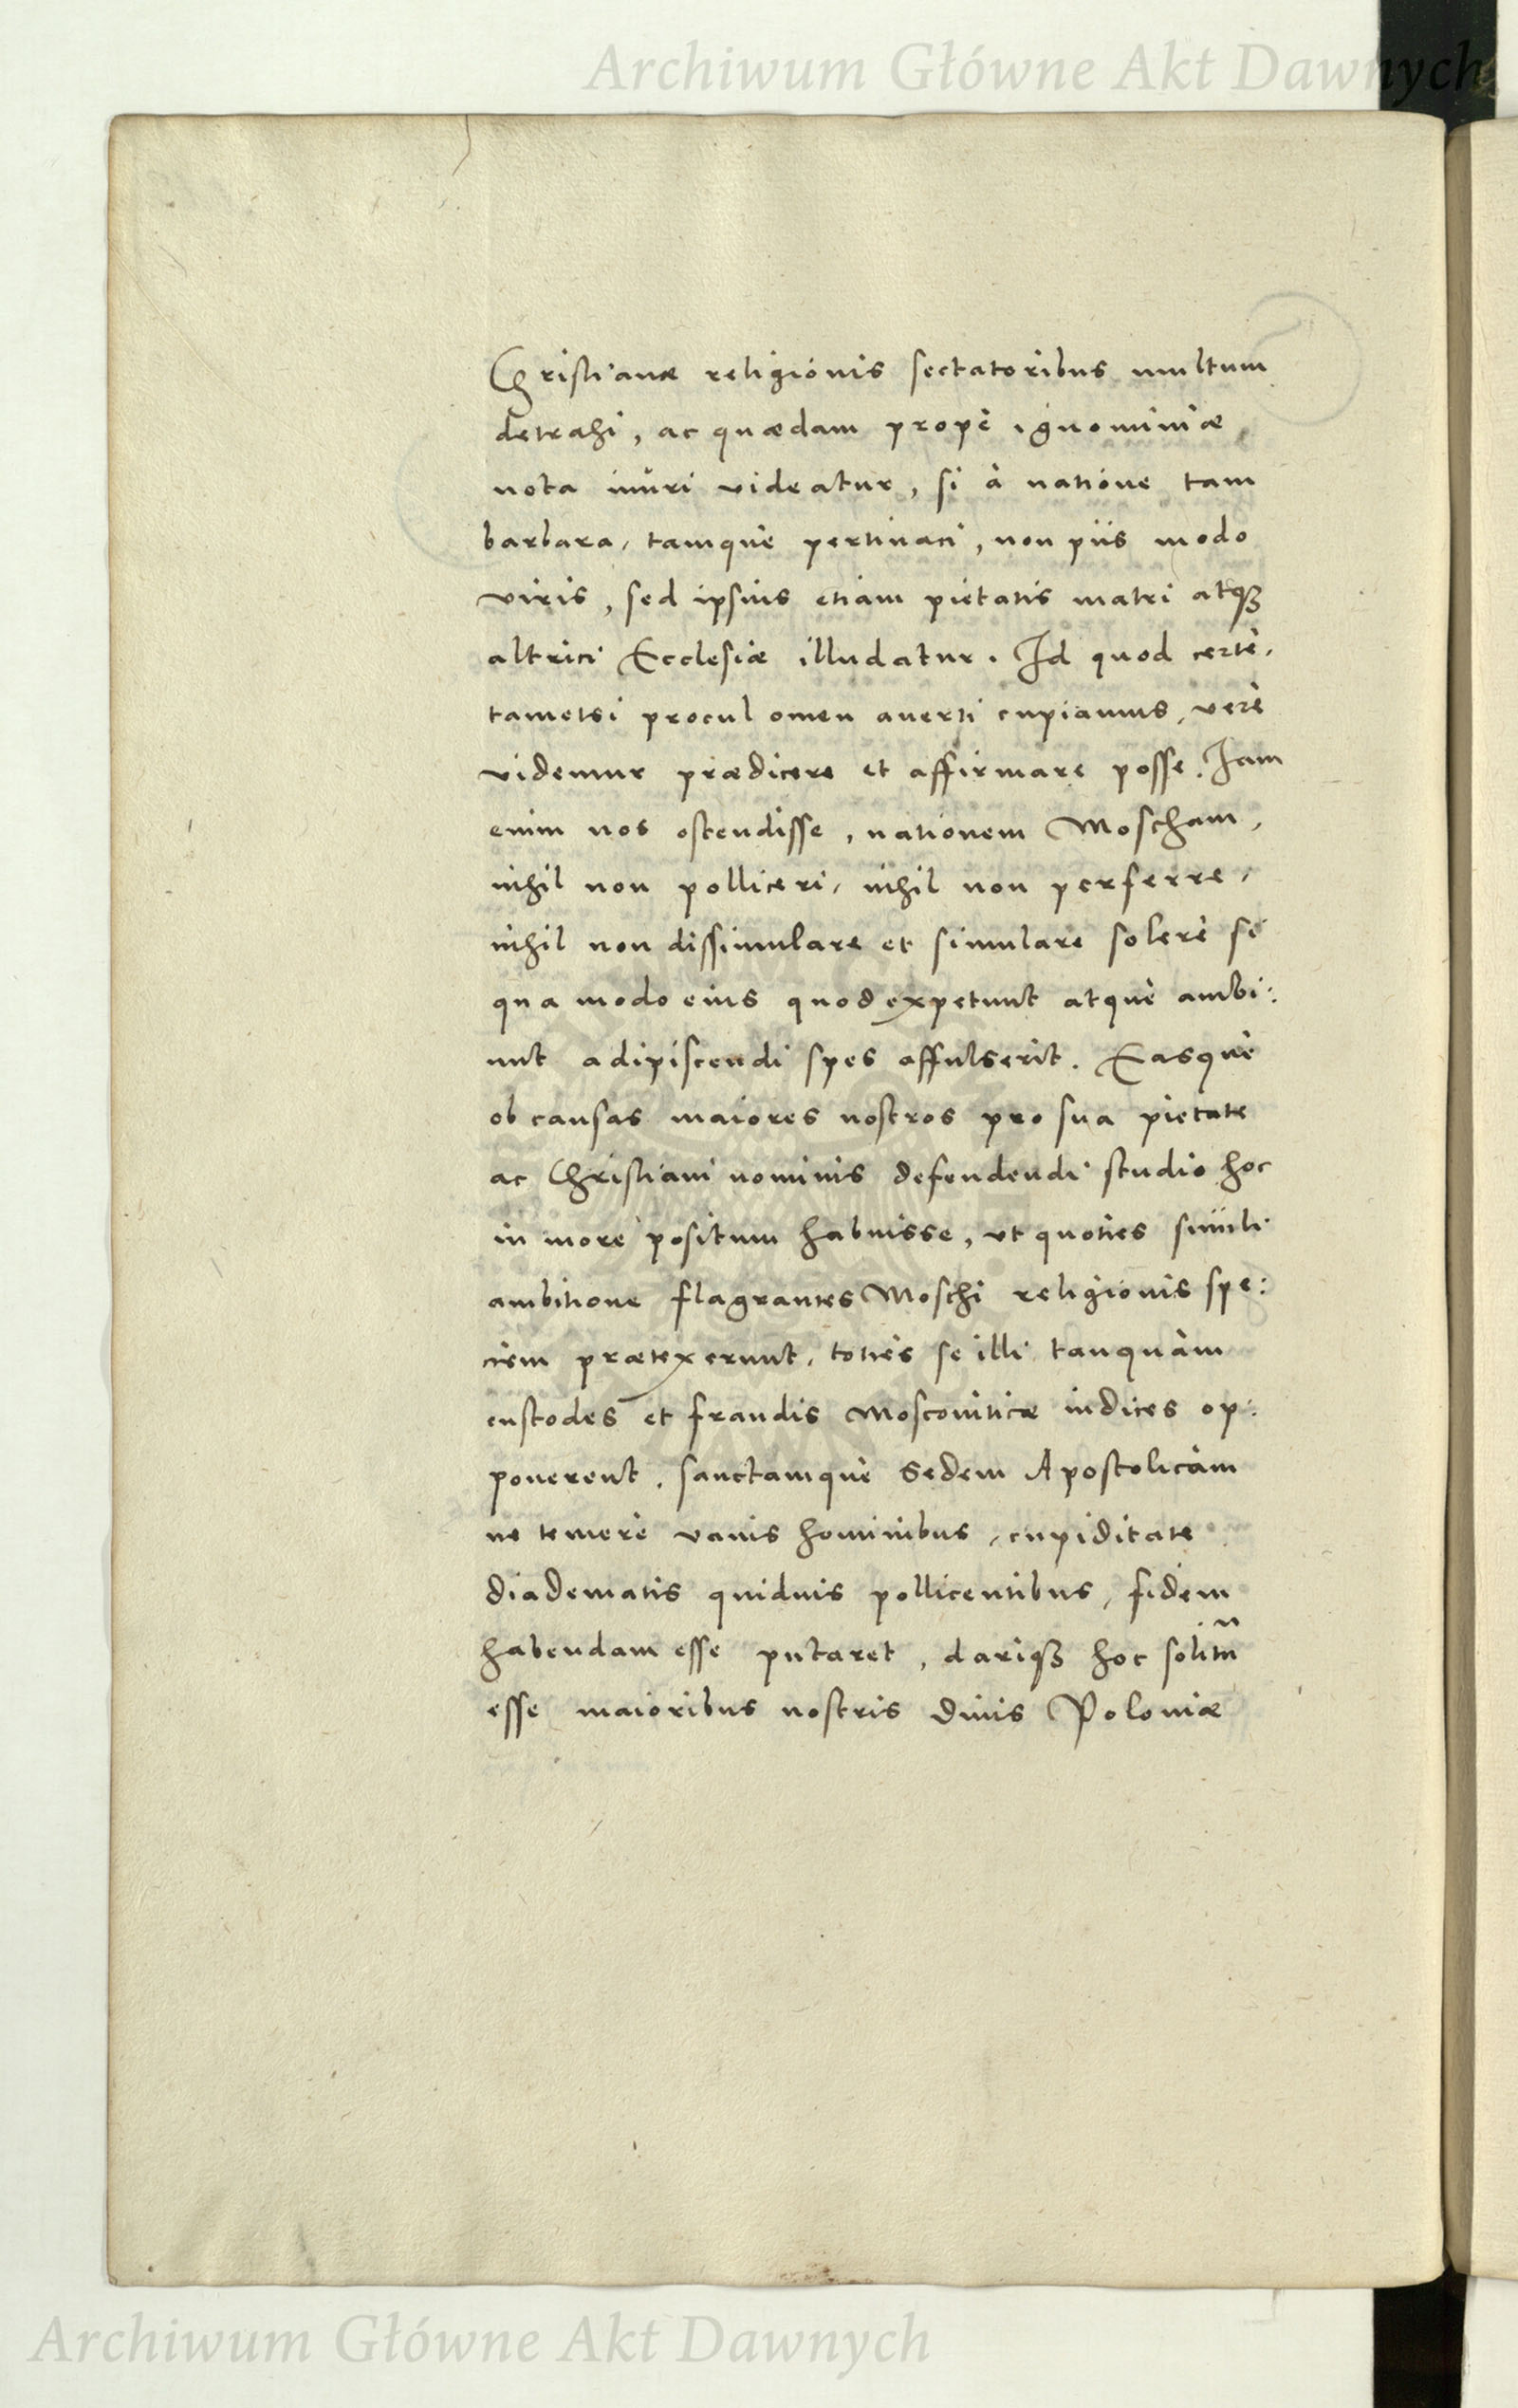 Archiwum Główne Akt Dawnych
Christianæ religionis sectatoribus multum
detrahi, ac quædam propè ignominiæ
nota inuri videatur, si à natione tam
barbara, tamquè pertinaci, non piis modo
viris, sed ipsius etiam pietatis matri atqȝ
altrici Ecclesiæ illudatur. Id quod certè,
tametsi procul omen auerti cupiamus, verè
videmur prædicere et affirmare posse. Jam
enim nos ostendisse, nationem Moscham,
nihil non polliceri, nihil non perferre,
nihil non dissimulare et simulare solere si
qua modo eius quod expetunt atquè ambi:
unt adipiscendi spes affulserit. Easquè
ob causas maiores nostros pro sua pietate
ac Christiani nominis defendendi studio hoc
in more positum habuisse, vt quoties simili
ambitione flagrantes Moschi religionis spe:
ciem prætexerunt, toties se illi tanquàm
custodes et fraudis Moscouiticæ indices op:
ponerent, sanctamquè Sedem Apostolicam
ne temerè vanis hominibus, cupiditate
diadematis quiduis pollicentibus, fidem
habendam esse putaret, dariqȝ hoc solitũ
esse maioribus nostris Diuis Poloniæ
Archiwum Główne Akt Dawnych